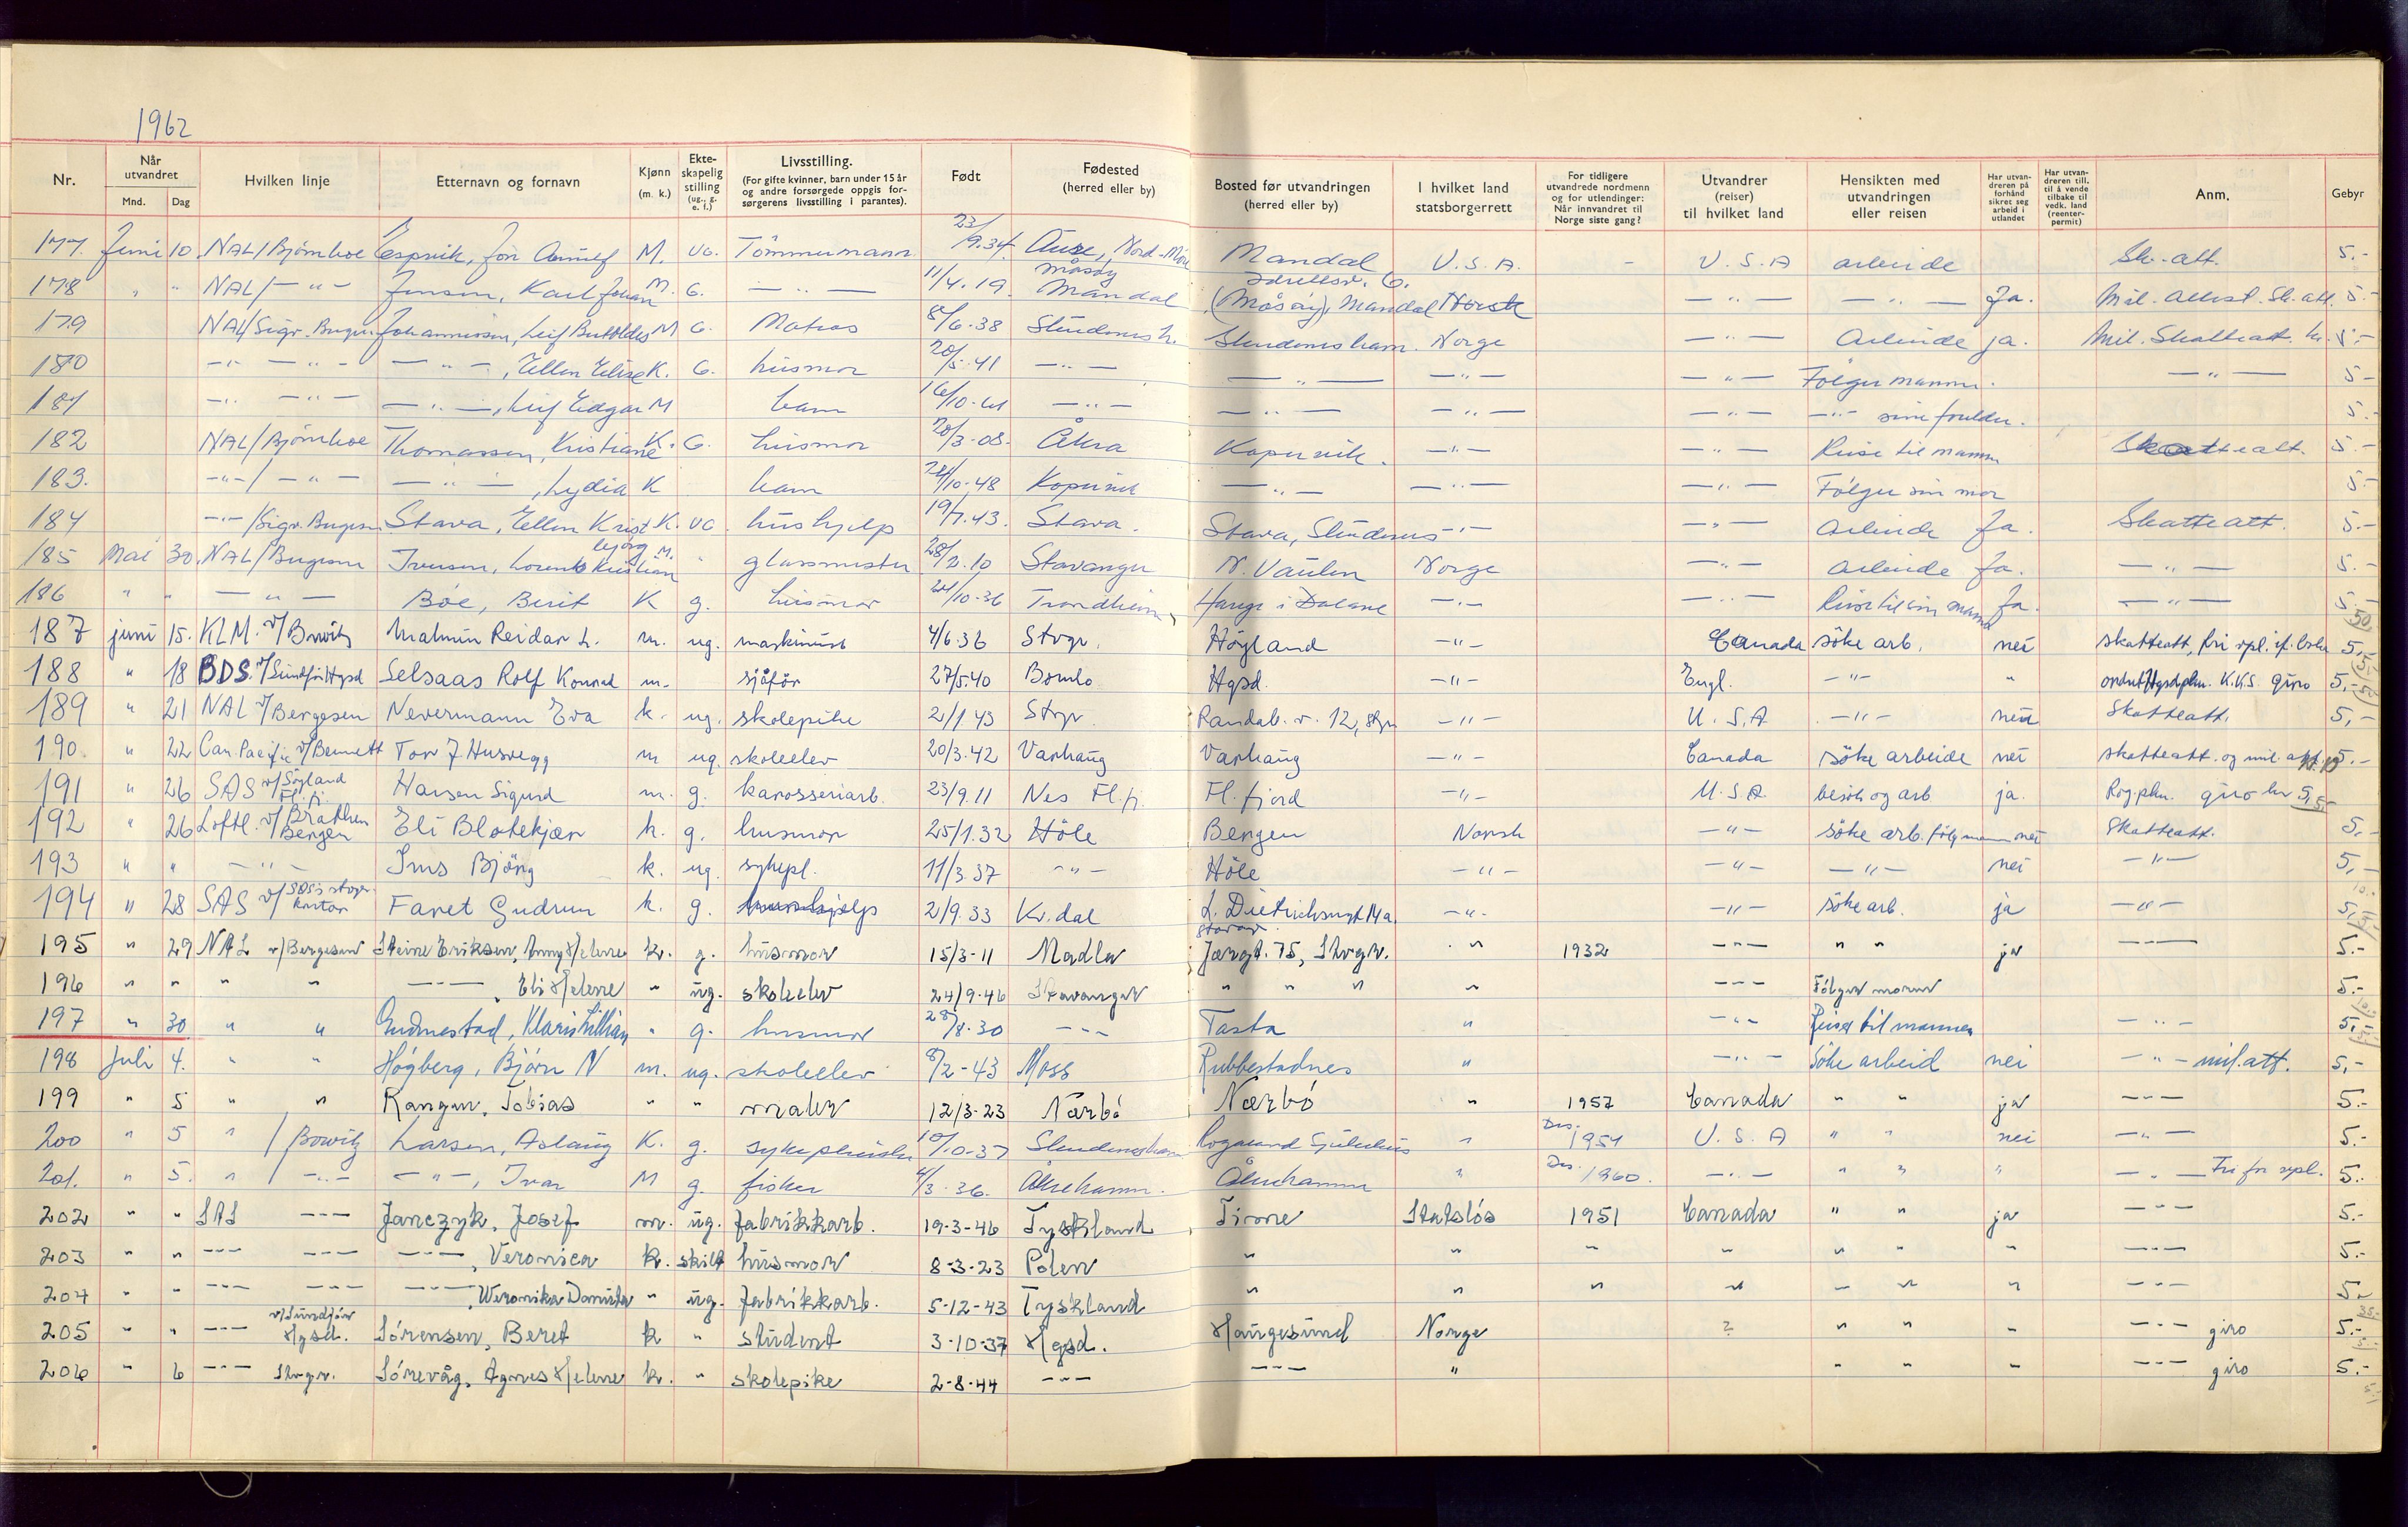 1962
Nr. Når utvandret Mnd. Dag Hvilken linje Etternavn og fornavn Kjønn (m. k.) Ekteskapelig stilling (ug., g. e. f.) Livsstilling. (For gifte kvinner, barn under 15 år og andre forsørgede oppgis forsørgerens livsstilling i parantes). Født Fødested (herred eller by) Bosted før utvandringen (herred eller by) I hvilket land statsborgerrett For tidligere utvandrede nordmenn og for utlendinger: Når innvandret til Norge siste gang? Utvandrer (reiser) til hvilket land Hensikten med utvandringen eller reisen Har utvandreren på forhånd sikret seg arbeid i utlandet Har utvandreren till. til å vende tilbake til vedk. land (reenterpermit) Anm. Gebyr
177. Juni 10. NAL/Bjørnboe Espvik, Jon M. UG. Tömmermann 23/9.34. Aure, Nord-Möre Mandal U.S.A. - U.S.A arbeide Sk.-att. 5.-
178 " " NAL/ - " - Jensen, Karl Johan M. G. - " - 11/4.19. Måsöy Mandal (Måsöy), Mandal Norsk - " - - " - Ja. Mil. Attest. Sk. att. 5.-
179 NAL/Sigv. Bergesen Johannessen, Leif M G. Matros 8/6-38 Skudenesh. Skudeneshavn. Norge - " - Arbeide ja. Mil. Skatteatt. 5.-
180 - " - " - - " - , Ellen Elise K. G. husmor 20/5-41 - " - - " - - " - - " - Følger mannen. - " - 5.-
181 - " - " - - " - , Leif Edgar M barn 16/10-61 - " - - " - - " - - " - - " - sine foreldre. 5.-
182 NAL/Bjørnboe Thomassen, Kristiane K. G. husmor 20/3-08. Åkra Kopervik. - " - - " - Reise til mannen Skatteatt. 5.-
183. - " - / - " - - " - , Lydia K barn /10-48 Kopervik - " - - " - - " - Følger sin mor 5.-
184 - " - /Sigv. Bergesen Stava, Ellen Kristbjørg K. UG. hushjelp 19/7.43. Stava. Stava, Skudenes - " - - " - Arbeide Ja. Skatteatt. 5.-
185 Mai 30. NAL/Bergesen Iversen, Lorents Kristian M. " glassmester 28/2.10 Stavanger N. Vaulen Norge - " - Arbeide Ja. - " - 5.-
186 " " - " - Böe, Berit K g. husmor /10-36 Trondheim Hauge i Dalane - " - - " - Reise til sin mann Ja. - " - 5.-
187 juni 15. KLM. v/Bowitz Malmin Reidar L. m. ug. maskinist 4/6.36 Stvgr. Höyland - " - Canada söke arb. nei skatteatt, fri vpl. 5,-
188 " 18 BDS. v/Sundför Hgsd Selsaas Rolf Konrad m. sjåför 27/5.40 Bömlo Hgsd. - " - Engl. - " - " K.K.S. giro 5,-
189 " 21 NAL v/Bergesen Nevermann Eva k. ug. skolepike 2/1 43 Stvgr. Randab. v. 12, Stvgr - " - U.S.A - " - nei Skatteatt. 5,-
190 " 22 Can. Pacific v/Bennett Tor J Husvegg m ug. skoleelev 20/3.42 Varhaug Varhaug - " - Canada söke arbeide nei skatteatt. og mil. att. 5.-
191 " 26 SAS v/Söyland Fl.fj. Hansen Sigurd m. g. karosseriarb. 23/9.11 Nes Fl.fj. Fl.fjord - " - U.S.A. besök og arb ja. Rog.phn. giro kr 5,-
192 " 26 Loftl. v/Bråthen Bergen Eli Blotekjær k. g. husmor 25/1.32 Höle Bergen Norsk - " - söke arb. følg mann nei Skatteatt. 5,-
193 " " - " - Ims Bjöng k. ug. sykepl. 11/3.37 - " - Höle - " - - " - - " - nei - " - 5,-
194 " 28 SAS v/SAS's stvgr. kontor Faret Gudrun k. g. hushjelp 2/9.33 Kv.dal L. Dietrichsongt 14a Stavgr. - " - - " - söke arb. ja - " - 5,-
195 " 29 NAL v/Bergesen Steine Eriksen, Anny Helene k. g. husmor 15/3-11 Madla Jærgt. 75, Stvgr. " 1932 - " - " " ja - " - 5.-
196 " " " " - " - , Eli Helene " ug. skoleelev 24/9-46 Stavanger " " " " - " - Følger moren 5.-
197 " 30 " " Gudmestad, Klaris Lillian " g. husmor 28/8.30 - " - Tasta " - " - Reiser til mannen - " - 5,-
198 Juli 4. " " Høgberg, Bjørn N m. ug. skoleelev 8/2-43 Moss Rubbestadnes " - " - Söke arbeid nei - " - mil. att. 5,-
199 " 5 " " Kangur, Tobias " " maler 12/3-23 Nærbö Nærbö " 1957 Canada " " ja - " - 5.-
200 " 5 " /Bowitz Larsen, Aslaug K. g. sykepleierske 10/10-37 Skudeneshavn Rogaland Sjukehus " Des. 1954 U.S.A " " nei - " - 5.-
201. " 5. " / - " - - " - , Ivar M g. fisker 4/3-36. Åkrehamn. Åkrehamn " Des. 1960. - " - " " " - " - Fri for vpl. 5.-
202 " " SAS - " - Janczyk, Josef m. ug. fabrikkarb. 19-3-46 Tyskland Time Statslös 1951 Canada " " ja - " - 5.-
203 " " - " - - " - - " - , Veronica k. skilt husmor 8-3-23 Polen " " " " " " " - " - 5.-
204 " " - " - - " - - " - , Weronika Danuta " ug. fabrikkarb. 5-12-43 Tyskland " " " " " " " - " - 5.-
205 " " - " - v/Sundför Hgsd. Sörensen, Beret k " student 3-10-37 Hgsd. Haugesund Norge ? " " " - " - giro 5.-
206 " 6 - " - Stvgr. Sörevåg, Agnes Helene k. " skolepike 2-8-44 - " - - " - " " " " - " - giro 5.-